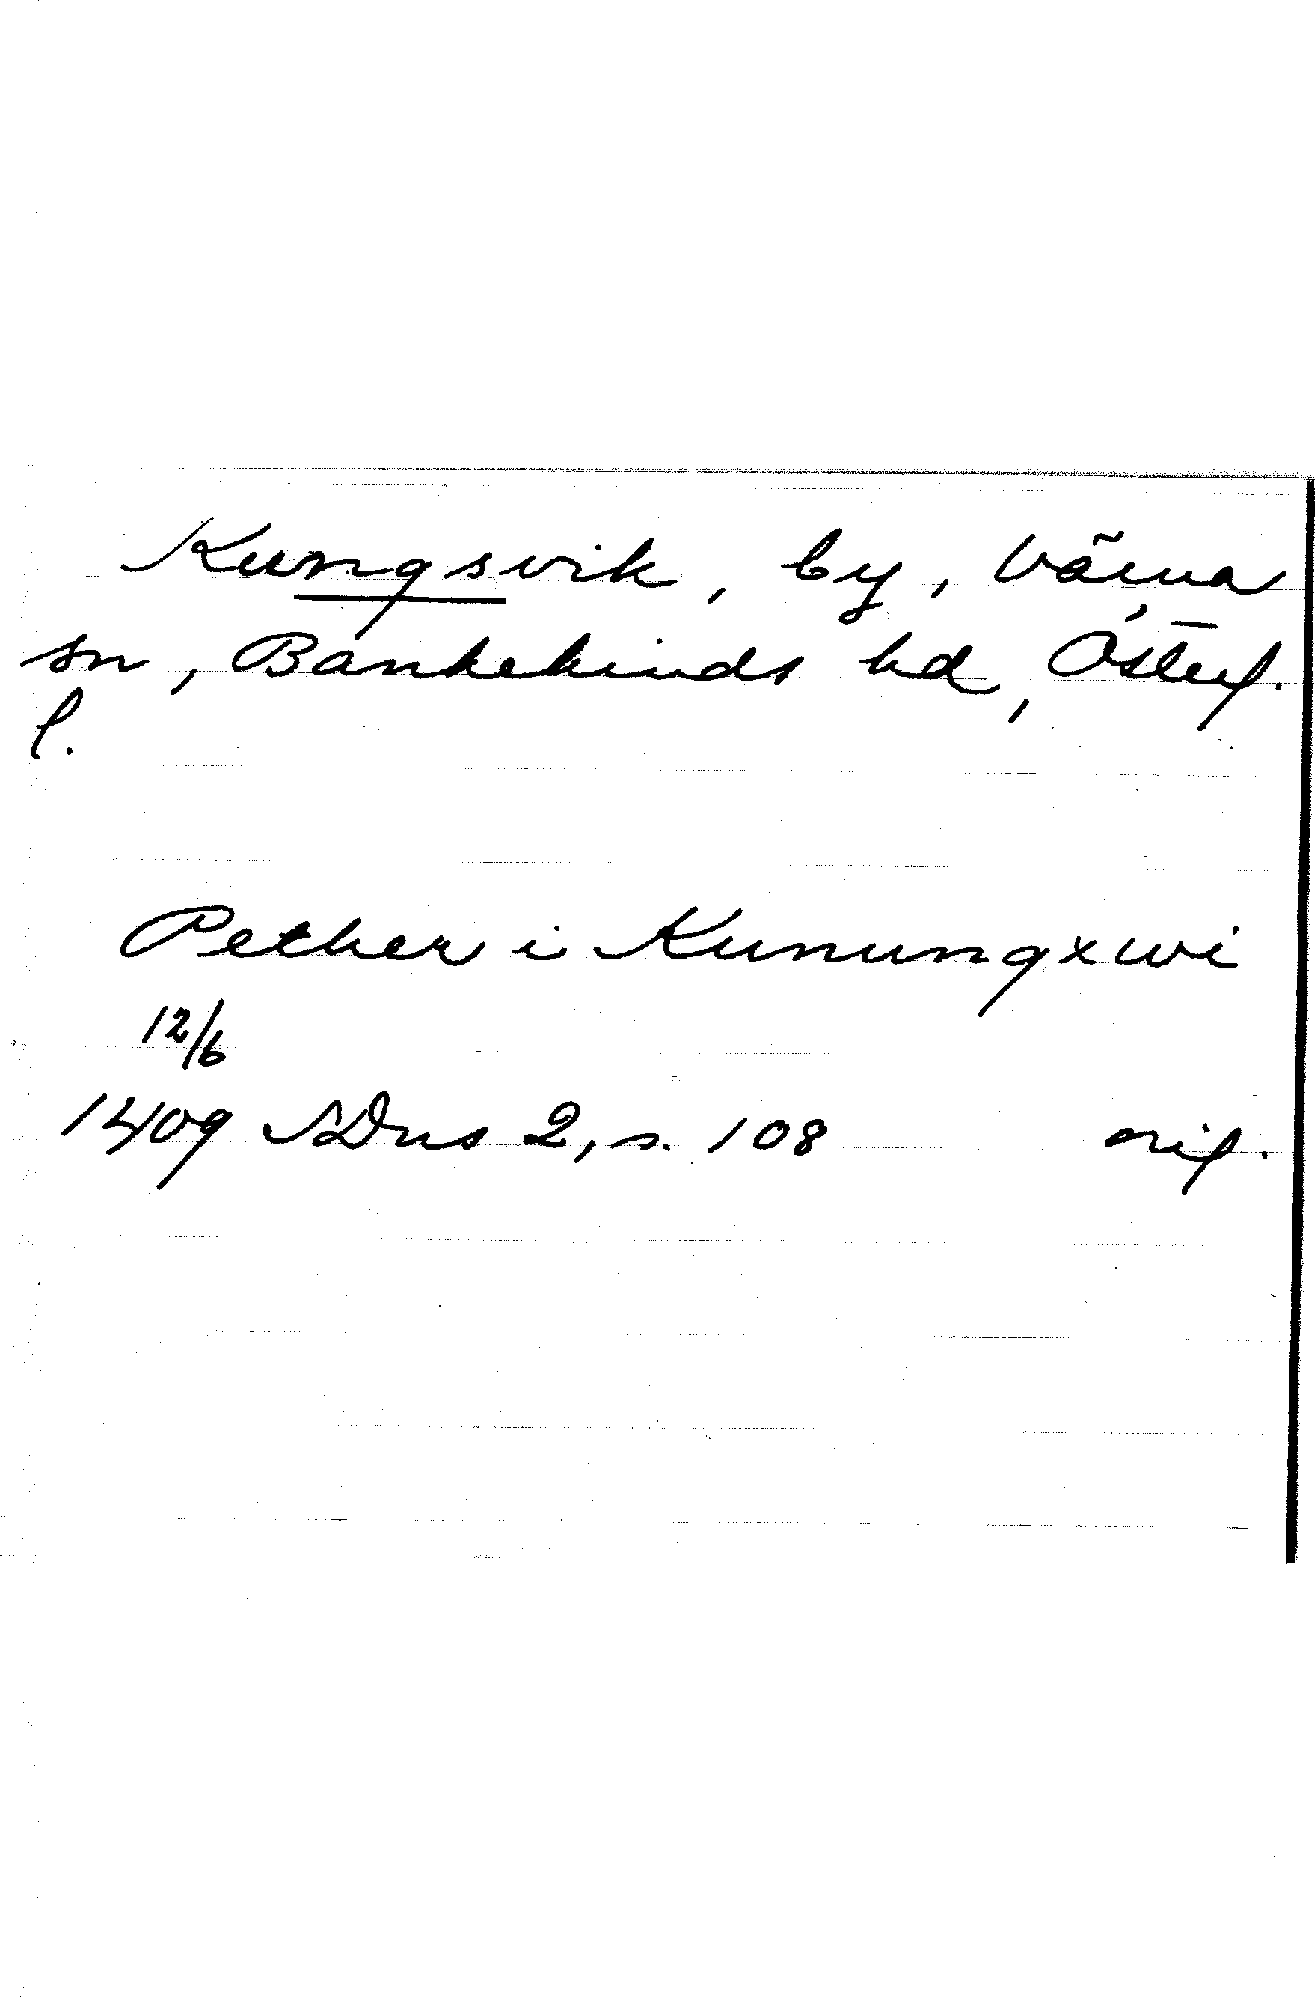 Kungsvik, by, Värna
sn, Bankekinds hd, Österg.
l.
Pether i Kunungxwi
12/6
1409 SDns 2, s. 108 orig.